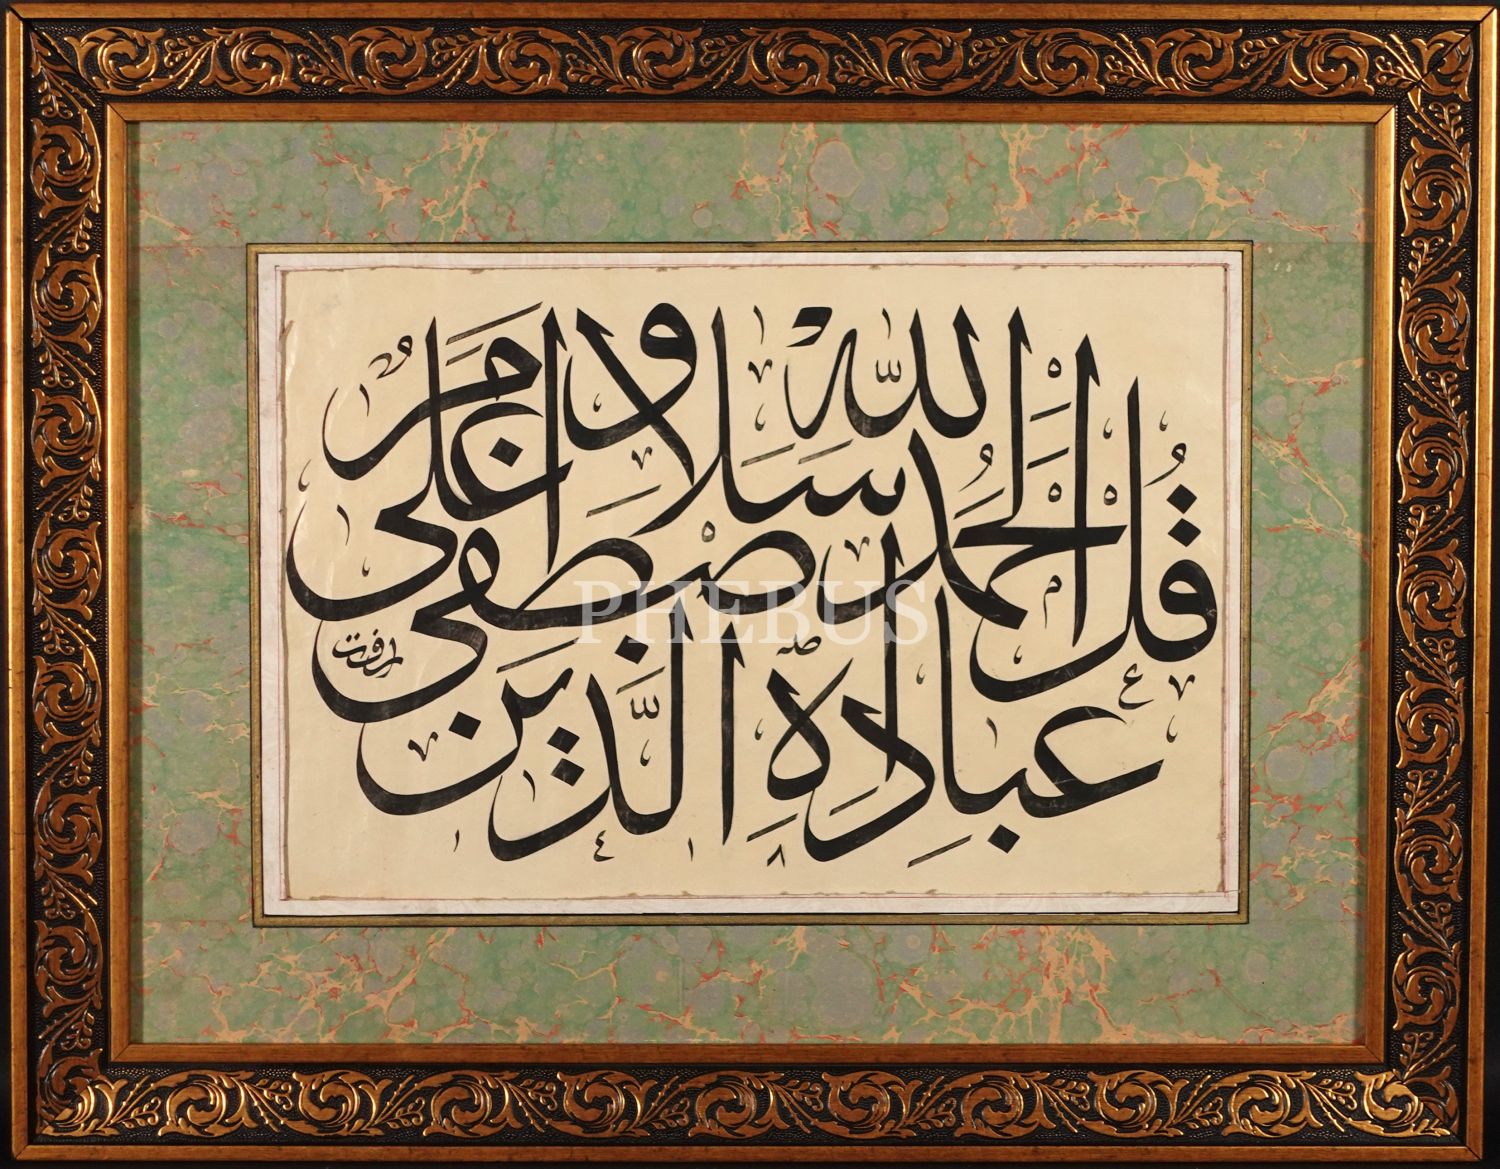 قُلِ الْحَمْدُ لِلّٰهِ وَسَلَامٌ عَلٰى
عِبَادِهِ الَّذِينَ اصْطَفٰى
١٤١٨
PHEBUS